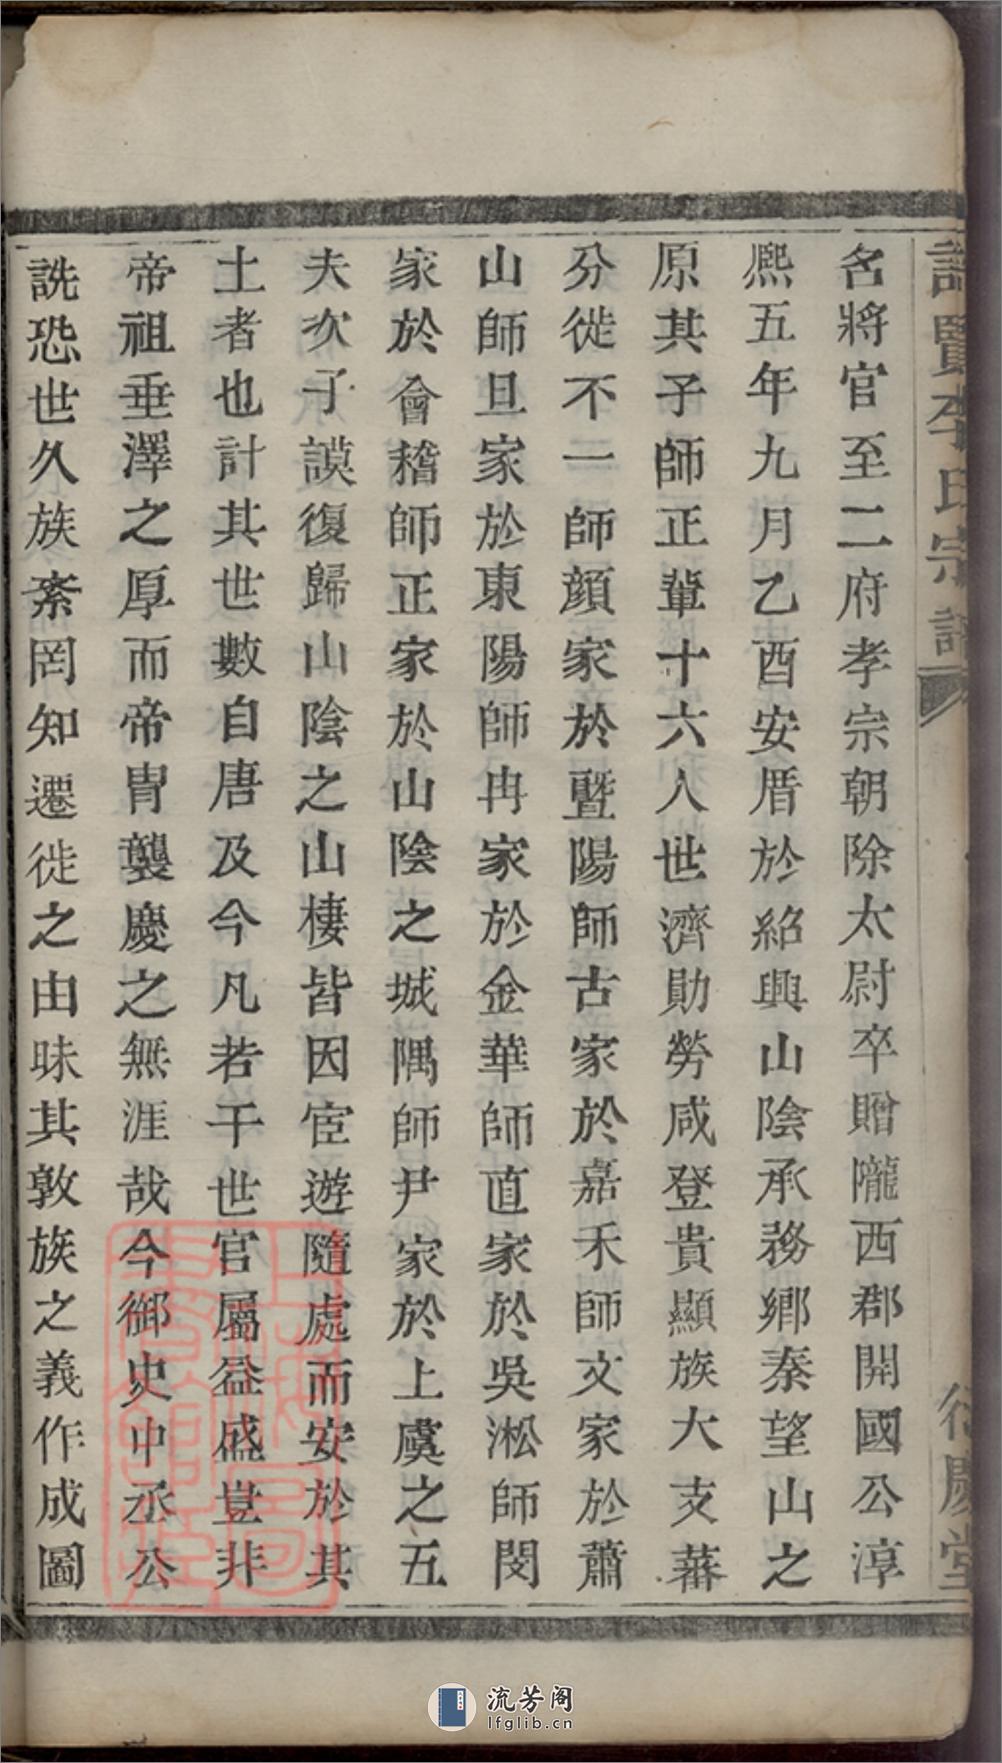 名將官至二府孝宗朝除太尉卒贈隴西郡開國公淳
熈五年九月乙酉安厝於紹興山陰承務鄉秦望山之
原其子師正輩十六人世濟勛勞咸登貴顯族大支蕃
分徙不一師顔家於曁陽師古家於嘉禾師文家於蕭
山師旦家於東陽師冉家於金華師直家於吳淞師閔
家於會稽師正家於山陰之城隅師尹家於上虞之五
夫次子謨復歸山陰之山棲皆因宦遊隨處而安於其
土者也計其世數自唐及今凡若干世官屬益盛豈非
帝祖垂澤之厚而帝胄襲慶之無涯哉今御史中丞公
詵恐世久族紊罔知遷徙之由昧其敦族之義作成圖
李氏宗譜
慶堂
上海圖書館藏
流芳阁
lfglib.cn